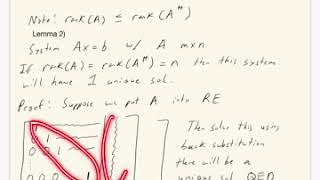 Note: rnk(A) ≤ rnk(A^#)
Lemma 2)
System Ax = b w/ A m×n
If rnk(A) = rnk(A^#) = n then this system
will have 1 unique sol.
Proof: Suppose we put A into RE
Then solve this using
back substitution
there will be a
unique sol QED